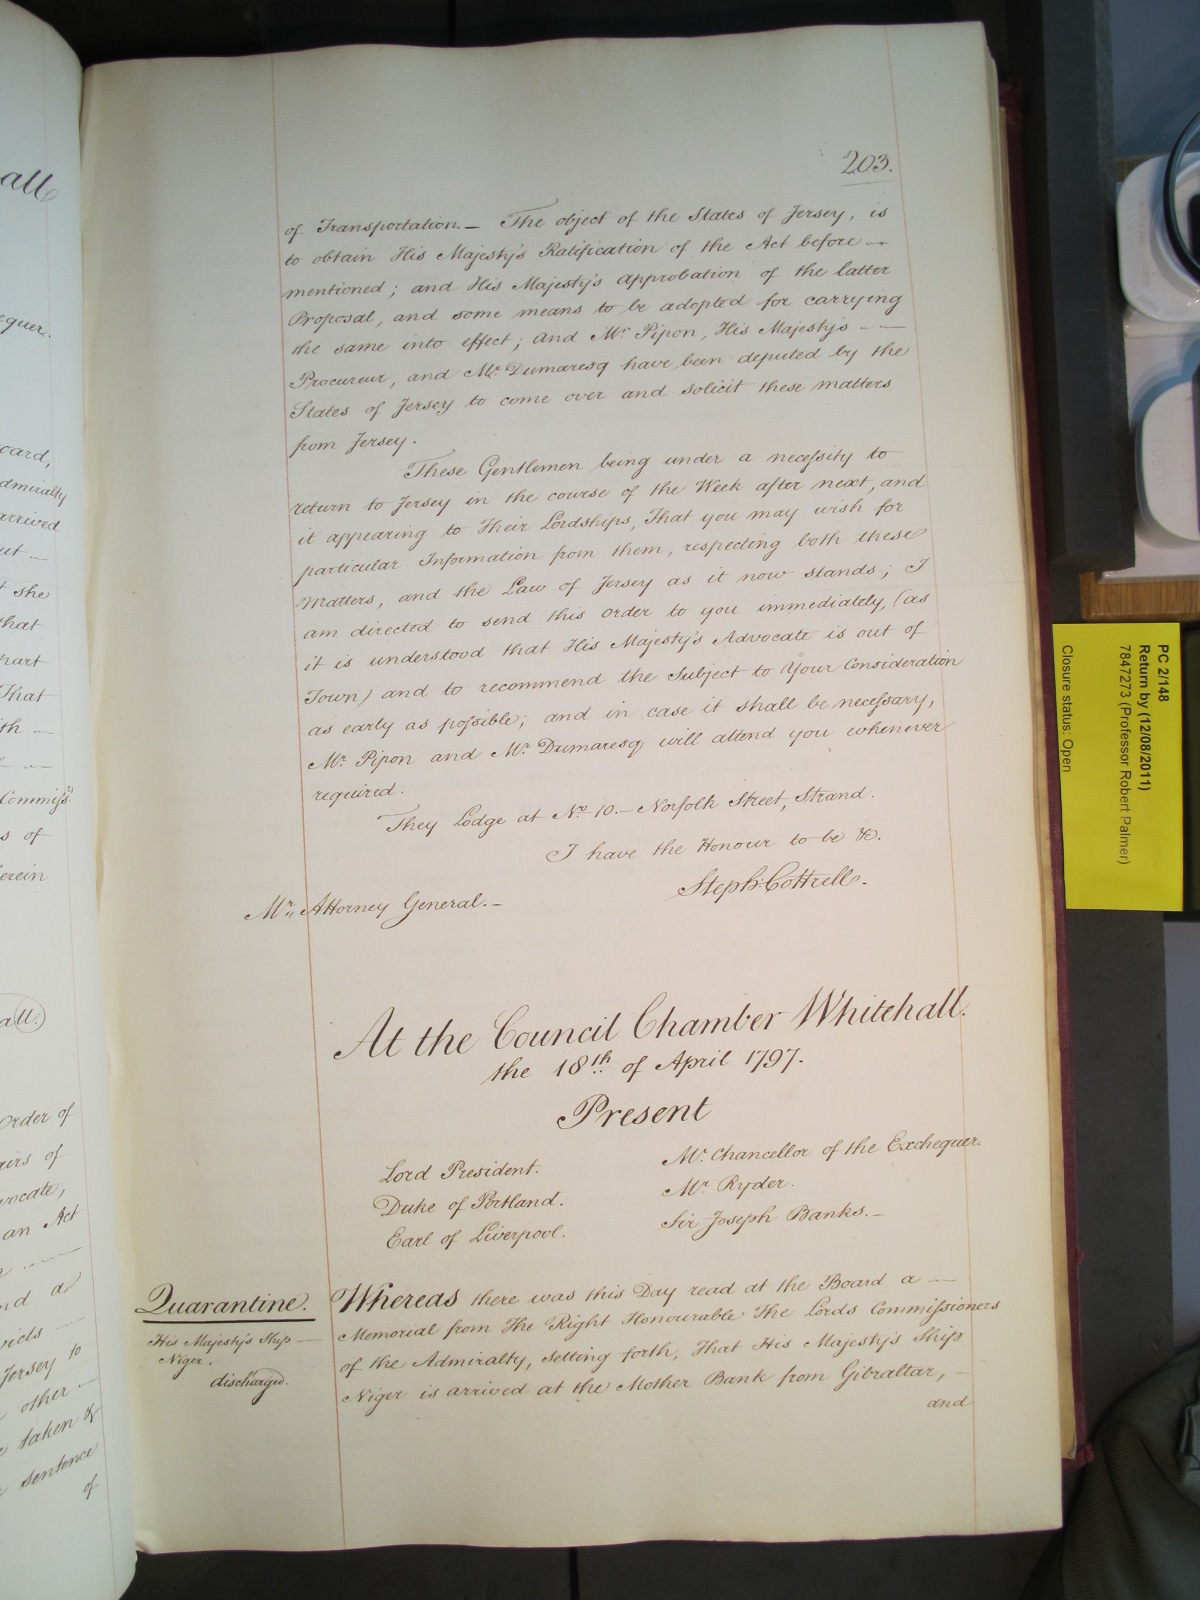 203.
of Transportation.— The object of the States of Jersey, is
to obtain His Majesty's Ratification of the Act before —
mentioned; and His Majesty's Approbation of the latter
Proposal, and some means to be adopted for carrying
the same into effect; and Mr. Pipon, His Majesty's — —
Procureur, and Mr. Dumaresq have been deputed by the
States of Jersey to come over and solicit these matters
from Jersey.
These Gentlemen being under a necessity to
return to Jersey in the course of the Week after next, and
it appearing to Their Lordships, That you may wish for
particular Information from them, respecting both these
Matters, and the Law of Jersey as it now stands; I
am directed to send this Order to you immediately, (as
it is understood that His Majesty's Advocate is out of
Town) and to recommend the Subject to Your Consideration
as early as possible; and in case it shall be necessary,
Mr. Pipon and Mr. Dumaresq will attend you whenever
required.
They Lodge at No. 10.— Norfolk Street, Strand.
I have the Honour to be &c.
Steph: Cottrell.
Mr. Attorney General.—
At the Council Chamber Whitehall.
the 18th of April 1797.
Present
Lord President.
Duke of Portland.
Earl of Liverpool.
Mr. Chancellor of the Exchequer.
Mr. Ryder.
Sir Joseph Banks.—
Quarantine.
His Majesty's Ship —
Niger.
discharged.
Whereas there was this Day read at the Board a —
Memorial from The Right Honourable The Lords Commissioners
of the Admiralty, setting forth, That His Majesty's Ship
Niger is arrived at the Mother Bank from Gibraltar, —
and
all
equer.
oard,
dmiralty
arrived
ut —
she
that
part
That
th —
Commiss
s of
erein
all.
Order of
airs of
vocate,
an Act
nd a
Jersey to
other —
taken &
sentence
of
PC 2/148
Return by (12/08/2011)
7847273 (Professor Robert Palmer)
Closure status: Open